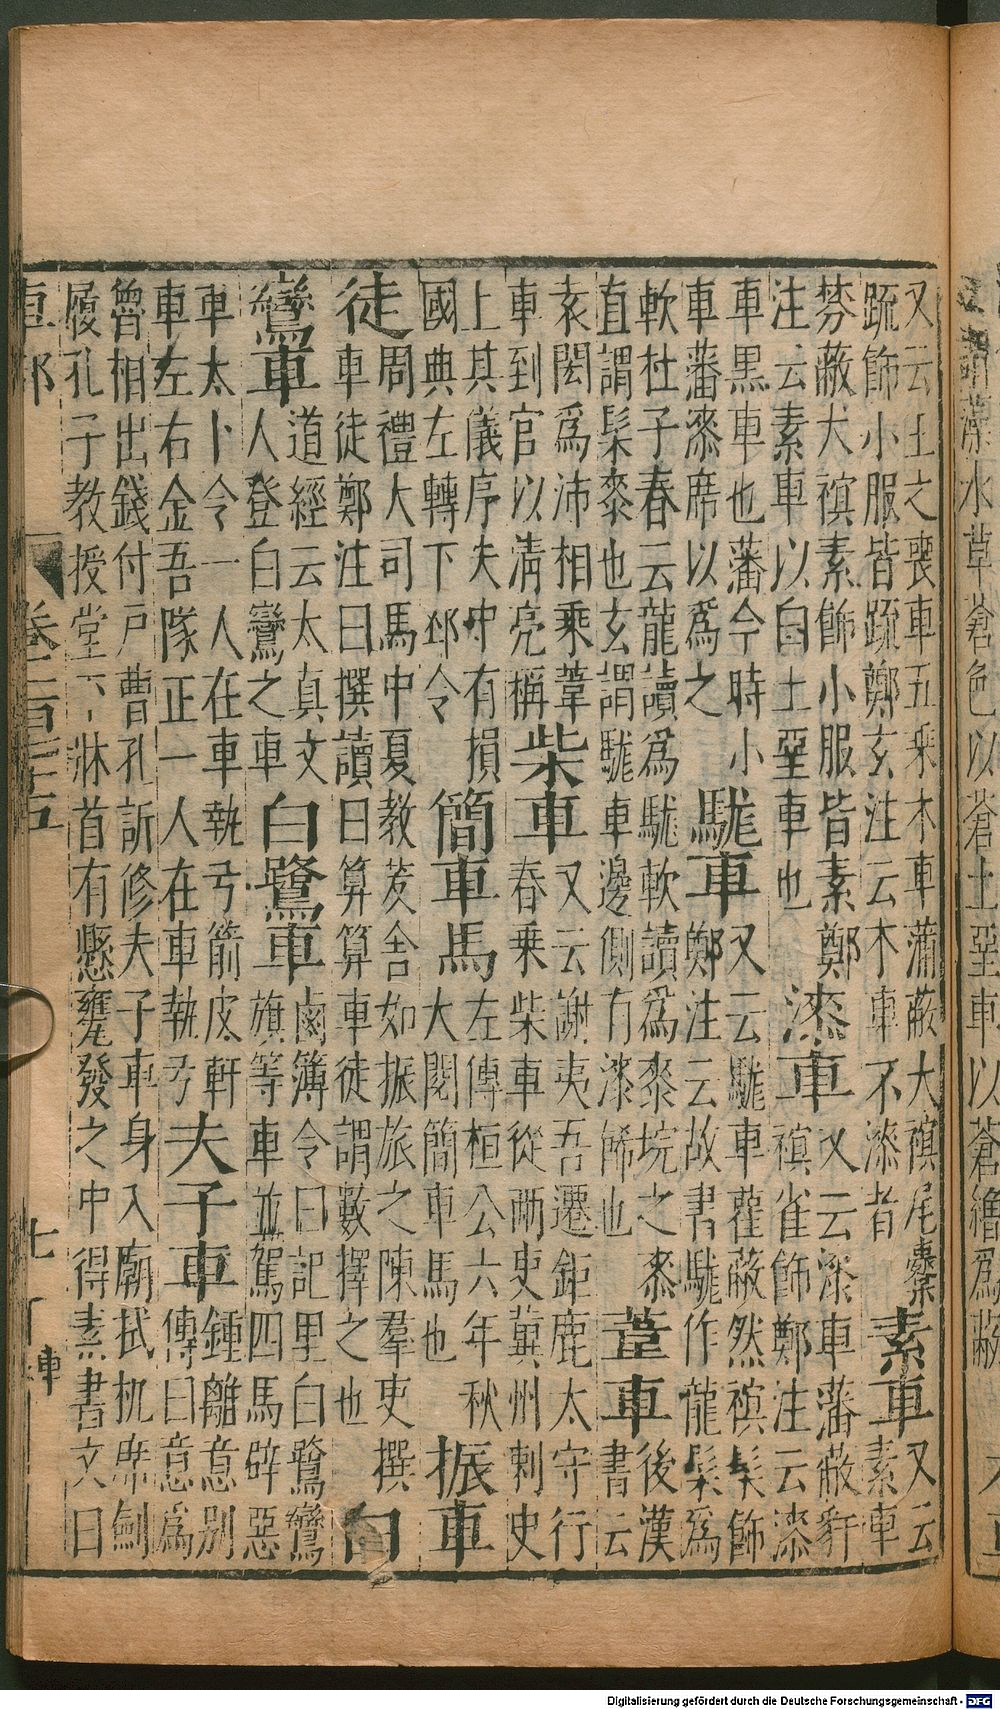 謂藻水草蒼色以蒼土堊車以蒼繒爲蔽
又云土之喪車五乘木車蒲蔽犬䄙尾櫜
疏飾小服皆疏鄭玄注云木車不漆者
素車
又云
素車
棼蔽犬䄙素飾小服皆素鄭
注云素車以白土堊車也
漆車
又云漆車藩蔽豻
䄙雀飾鄭注云漆
車黑車也藩今時小
車藩漆席以爲之
駹車
又云駹車雚蔽然䄙髹飾
鄭注云故書駹作龍髹爲
軟杜子春云龍讀爲駹軟讀爲桼垸之桼
直謂髹桼也玄謂駹車邊側有漆飾也
葦車
後漢
書云
袁閎爲沛相乘葦
車到官以清亮稱
柴車
又云謝夷吾遷鉅鹿太守行
春乗柴車從兩吏冀州刺史
上其儀序夫中有損
國典左轉下邳令
簡車馬
左傳桓公六年秋
大閱簡車馬也
振車
徒
周禮大司馬中夏教茇舍如振旅之陳羣吏撰
車徒鄭注曰撰讀曰算算車徒謂數擇之也
白
鸞車
道經云太真文
人登白鸞之車
白鷺車
鹵簿令曰記里白鷺鸞
旗等車並駕四馬辟惡
車太卜令一人在車執弓箭皮軒
車左右金吾隊正一人在車執弩
夫子車
鍾離意別
傳曰意爲
曾相出錢付戶曹孔訢修夫子車身入廟拭机席劒
履孔子教授堂下牀首有懸甕発發之中得素書文曰
車部
七
Digitalisierung gefördert durch die Deutsche Forschungsgemeinschaft - DFG